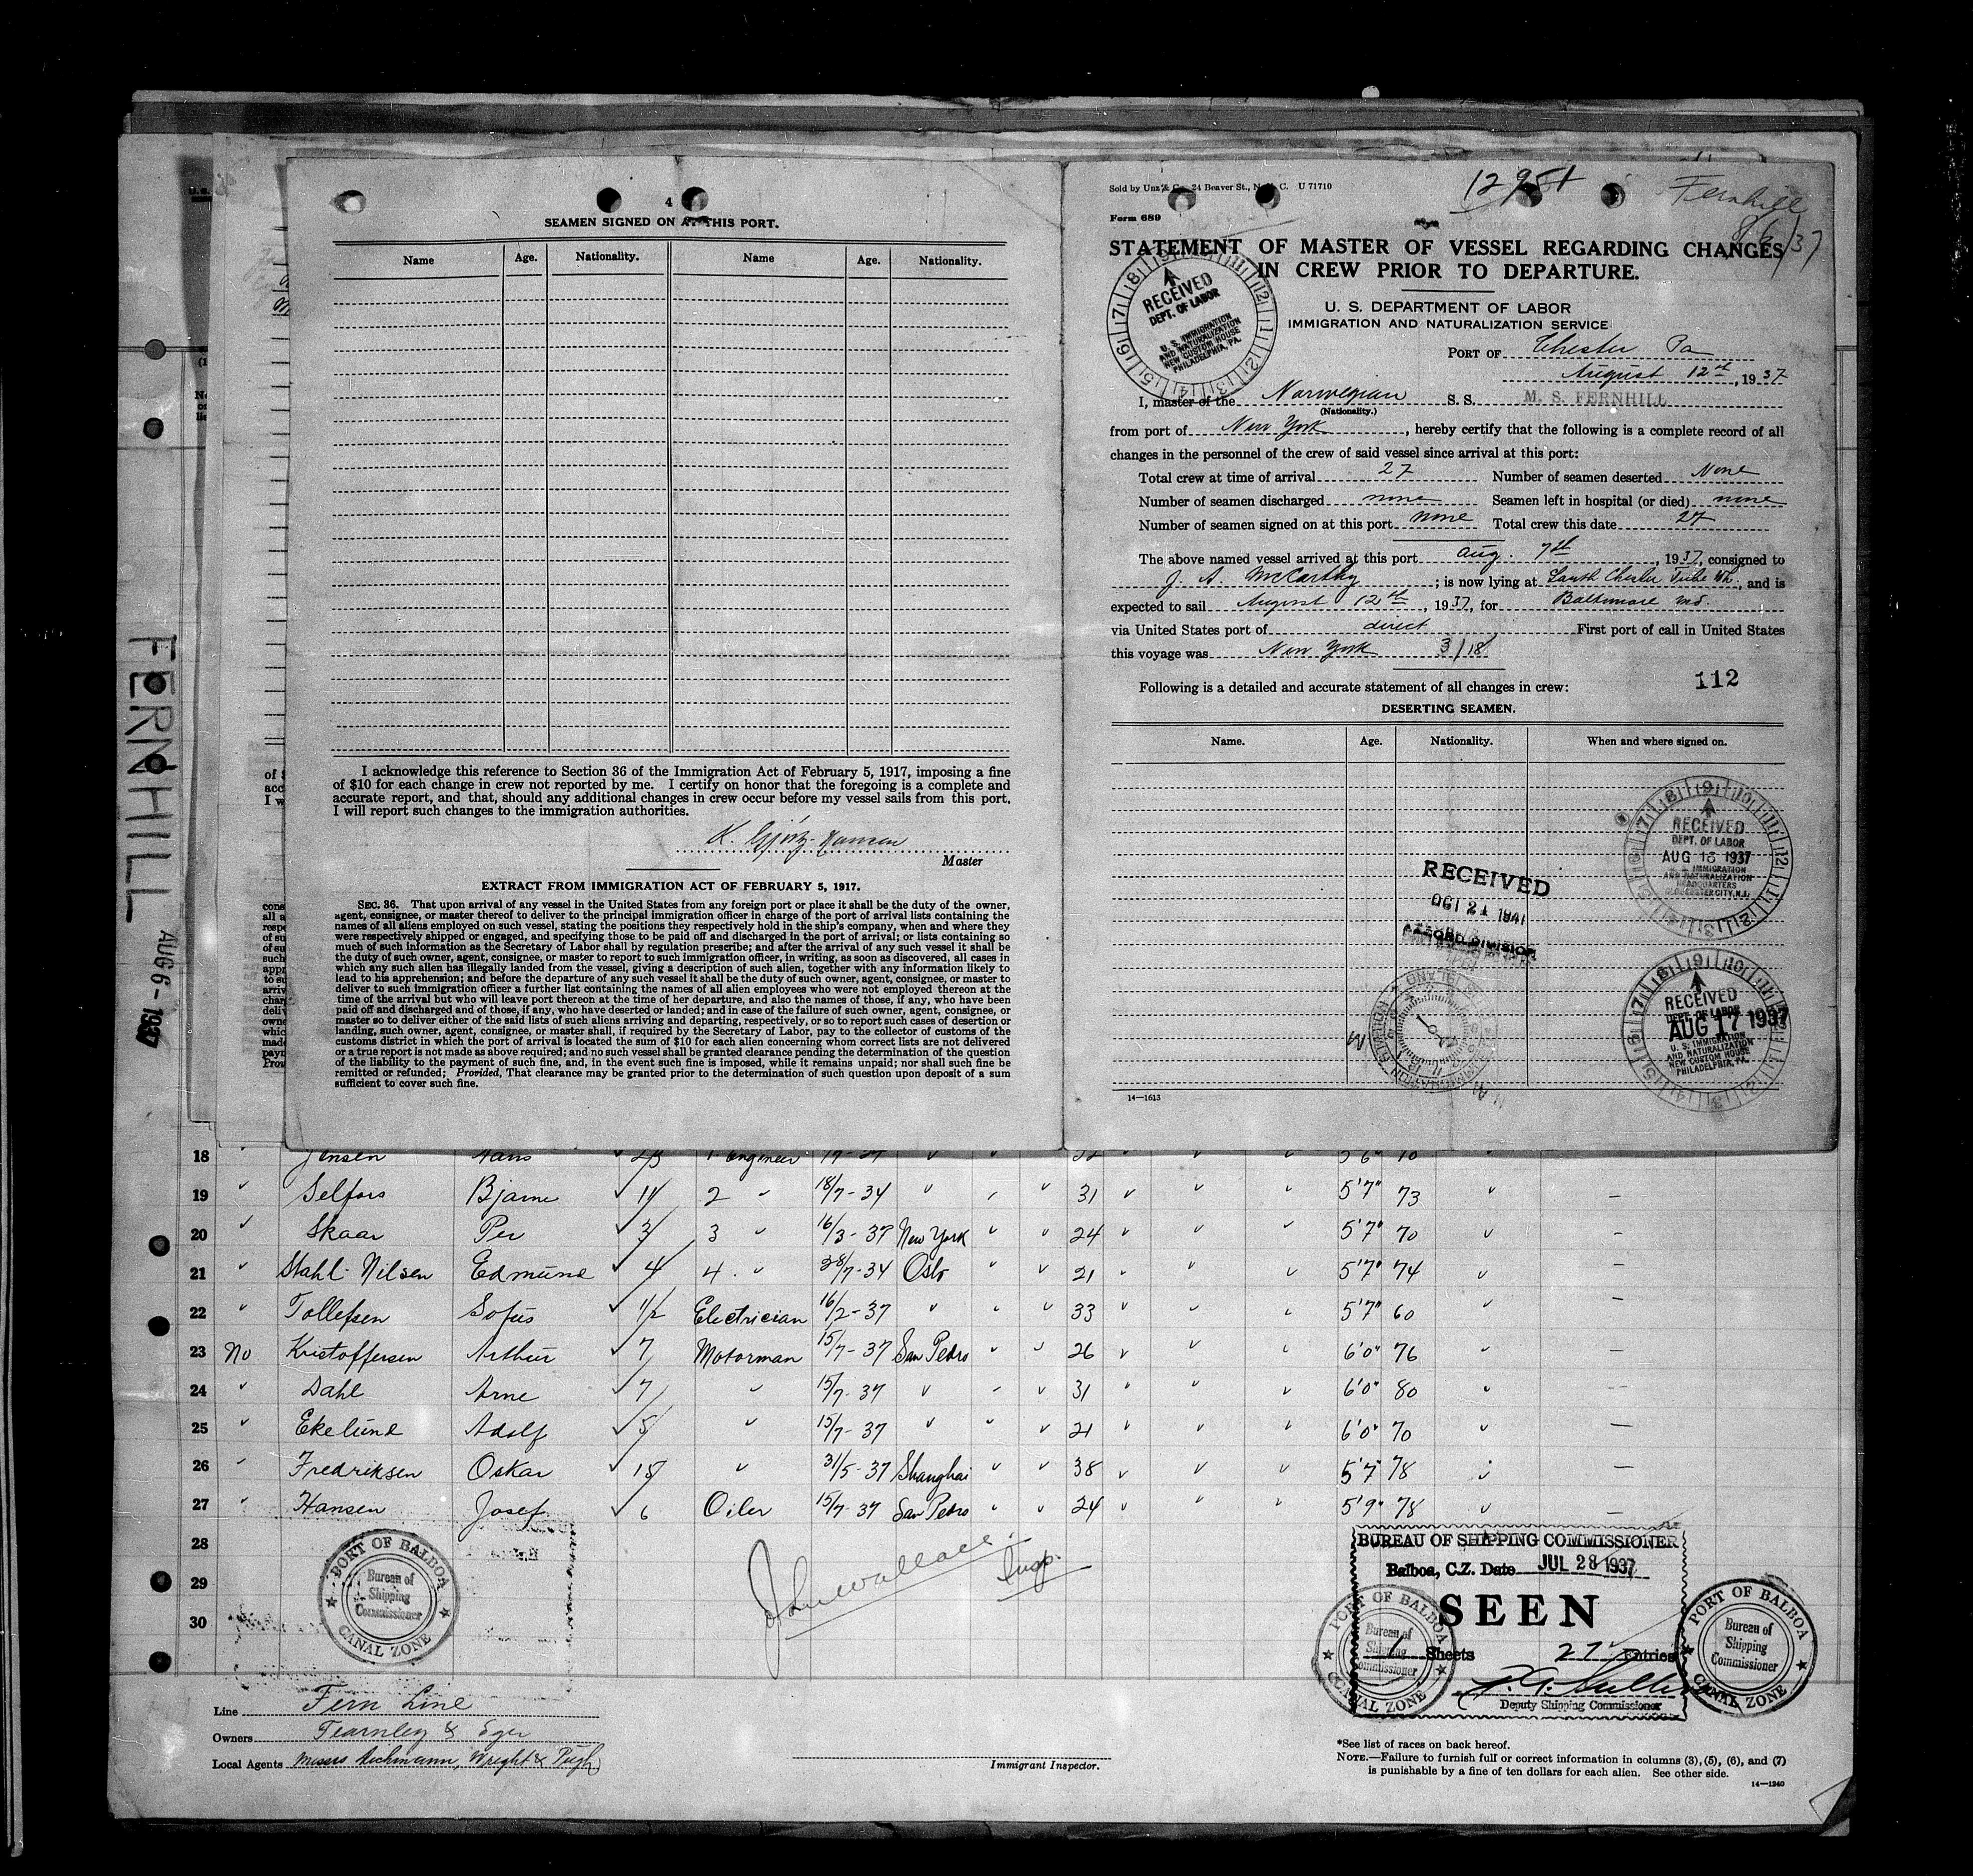 4
SEAMEN SIGNED ON AT THIS PORT.
Name Age. Nationality. Name Age. Nationality.
I acknowledge this reference to Section 36 of the Immigration Act of February 5, 1917, imposing a fine
of $10 for each change in crew not reported by me. I certify on honor that the foregoing is a complete and
accurate report, and that, should any additional changes in crew occur before my vessel sails from this port,
I will report such changes to the immigration authorities.
Master
EXTRACT FROM IMMIGRATION ACT OF FEBRUARY 5, 1917.
SEC. 36. That upon arrival of any vessel in the United States from any foreign port or place it shall be the duty of the owner,
agent, consignee, or master thereof to deliver to the principal immigration officer in charge of the port of arrival lists containing the
names of all aliens employed on such vessel, stating the positions they respectively hold in the ship's company, when and where they
were respectively shipped or engaged, and specifying those to be paid off and discharged in the port of arrival; or lists containing so
much of such information as the Secretary of Labor shall by regulation prescribe; and after the arrival of any such vessel it shall be
the duty of such owner, agent, consignee, or master to report to such immigration officer, in writing, as soon as discovered, all cases in
which any such alien has illegally landed from the vessel, giving a description of such alien, together with any information likely to
lead to his apprehension; and before the departure of any such vessel it shall be the duty of such owner, agent, consignee, or master to
deliver to such immigration officer a further list containing the names of all alien employees who were not employed thereon at the
time of the arrival but who will leave port thereon at the time of her departure, and also the names of those, if any, who have been
paid off and discharged and of those, if any, who have deserted or landed; and in case of the failure of such owner, agent, consignee, or
master so to deliver either of the said lists of such aliens arriving and departing, respectively, or so to report such cases of desertion or
landing, such owner, agent, consignee, or master shall, if required by the Secretary of Labor, pay to the collector of customs of the
customs district in which the port of arrival is located the sum of $10 for each alien concerning whom correct lists are not delivered
or a true report is not made as above required; and no such vessel shall be granted clearance pending the determination of the question
of the liability to the payment of such fine, and, in the event such fine is imposed, while it remains unpaid; nor shall such fine be
remitted or refunded; Provided, That clearance may be granted prior to the determination of such question upon deposit of a sum
sufficient to cover such fine.
Sold by Unz & Co., 24 Beaver St., N. Y. C. U 71710
Fernhill
8/6/37
Form 689
STATEMENT OF MASTER OF VESSEL REGARDING CHANGES
IN CREW PRIOR TO DEPARTURE.
U. S. DEPARTMENT OF LABOR
IMMIGRATION AND NATURALIZATION SERVICE
RECEIVED
DEPT. OF LABOR
U. S. IMMIGRATION
AND NATURALIZATION
NEW CUSTOM HOUSE
PHILADELPHIA, PA.
PORT OF Chester Pa
August 12th, 1937
I, master of the Norwegian S. S. M. S. FERNHILL
(Nationality.)
from port of New York, hereby certify that the following is a complete record of all
changes in the personnel of the crew of said vessel since arrival at this port:
Total crew at time of arrival 27 Number of seamen deserted None
Number of seamen discharged none Seamen left in hospital (or died) none
Number of seamen signed on at this port none Total crew this date 27
The above named vessel arrived at this port Aug. 7th, 1937, consigned to
J. A. McCarthy; is now lying at South Chester Tube Wh., and is
expected to sail August 12th, 1937, for Baltimore Md.
via United States port of direct First port of call in United States
this voyage was New York 3/18
Following is a detailed and accurate statement of all changes in crew: 112
DESERTING SEAMEN.
Name. Age. Nationality. When and where signed on.
RECEIVED
DEPT. OF LABOR
AUG 13 1937
U. S. IMMIGRATION
AND NATURALIZATION
HEADQUARTERS
GLOUCESTER CITY, N.J.
RECEIVED
OCT 21 1941
RECORD DIVISION
RECEIVED
DEPT. OF LABOR
AUG 17 1937
U. S. IMMIGRATION
AND NATURALIZATION
NEW CUSTOM HOUSE
PHILADELPHIA, PA.
14—1613
FERNHILL AUG 6 - 1937
18 Jensen Hans Engineer 5'6"
19 Selfors Bjarne 11 2 " 18/7-34 " " " 31 " " " 5'7" 73 " —
20 Skaar Per 3 3 " 16/3-37 New York " " 24 " " " 5'7" 70 " —
21 Stahl-Nilsen Edmund 4 4. " 28/7-34 Oslo " " 21 " " " 5'7" 74 " —
22 Tollefsen Sofus 1/2 Electrician 16/2-37 " " " 33 " " " 5'7" 60 " —
23 No Kristoffersen Arthur 7 Motorman 15/7-37 San Pedro " " 26 " " " 6'0" 76 " —
24 " Dahl Arne 7 " 15/7-37 " " " 31 " " " 6'0" 80 " —
25 " Ekelund Adolf 5 " 15/7-37 " " " 21 " " " 6'0" 70 " —
26 " Fredriksen Oskar 15 " 31/5-37 Shanghai " " 38 " " " 5'7" 78 " —
27 " Hansen Josef 6 Oiler 15/7-37 San Pedro " " 24 " " " 5'9" 78 " —
28
29
30
PORT OF BALBOA
Bureau of
Shipping
Commissioner
CANAL ZONE
Insp.
BUREAU OF SHIPPING COMMISSIONER
Balboa, C.Z. Date JUL 28 1937
SEEN
1 Sheets 27 Entries
Deputy Shipping Commissioner
PORT OF BALBOA
Bureau of
Shipping
Commissioner
CANAL ZONE
PORT OF BALBOA
Bureau of
Shipping
Commissioner
CANAL ZONE
Line Fern Line
Owners Fearnley & Eger
Local Agents Messrs Aichmann, Wright & Pugh
Immigrant Inspector.
*See list of races on back hereof.
NOTE.—Failure to furnish full or correct information in columns (3), (5), (6), and (7)
is punishable by a fine of ten dollars for each alien. See other side.
14—1240